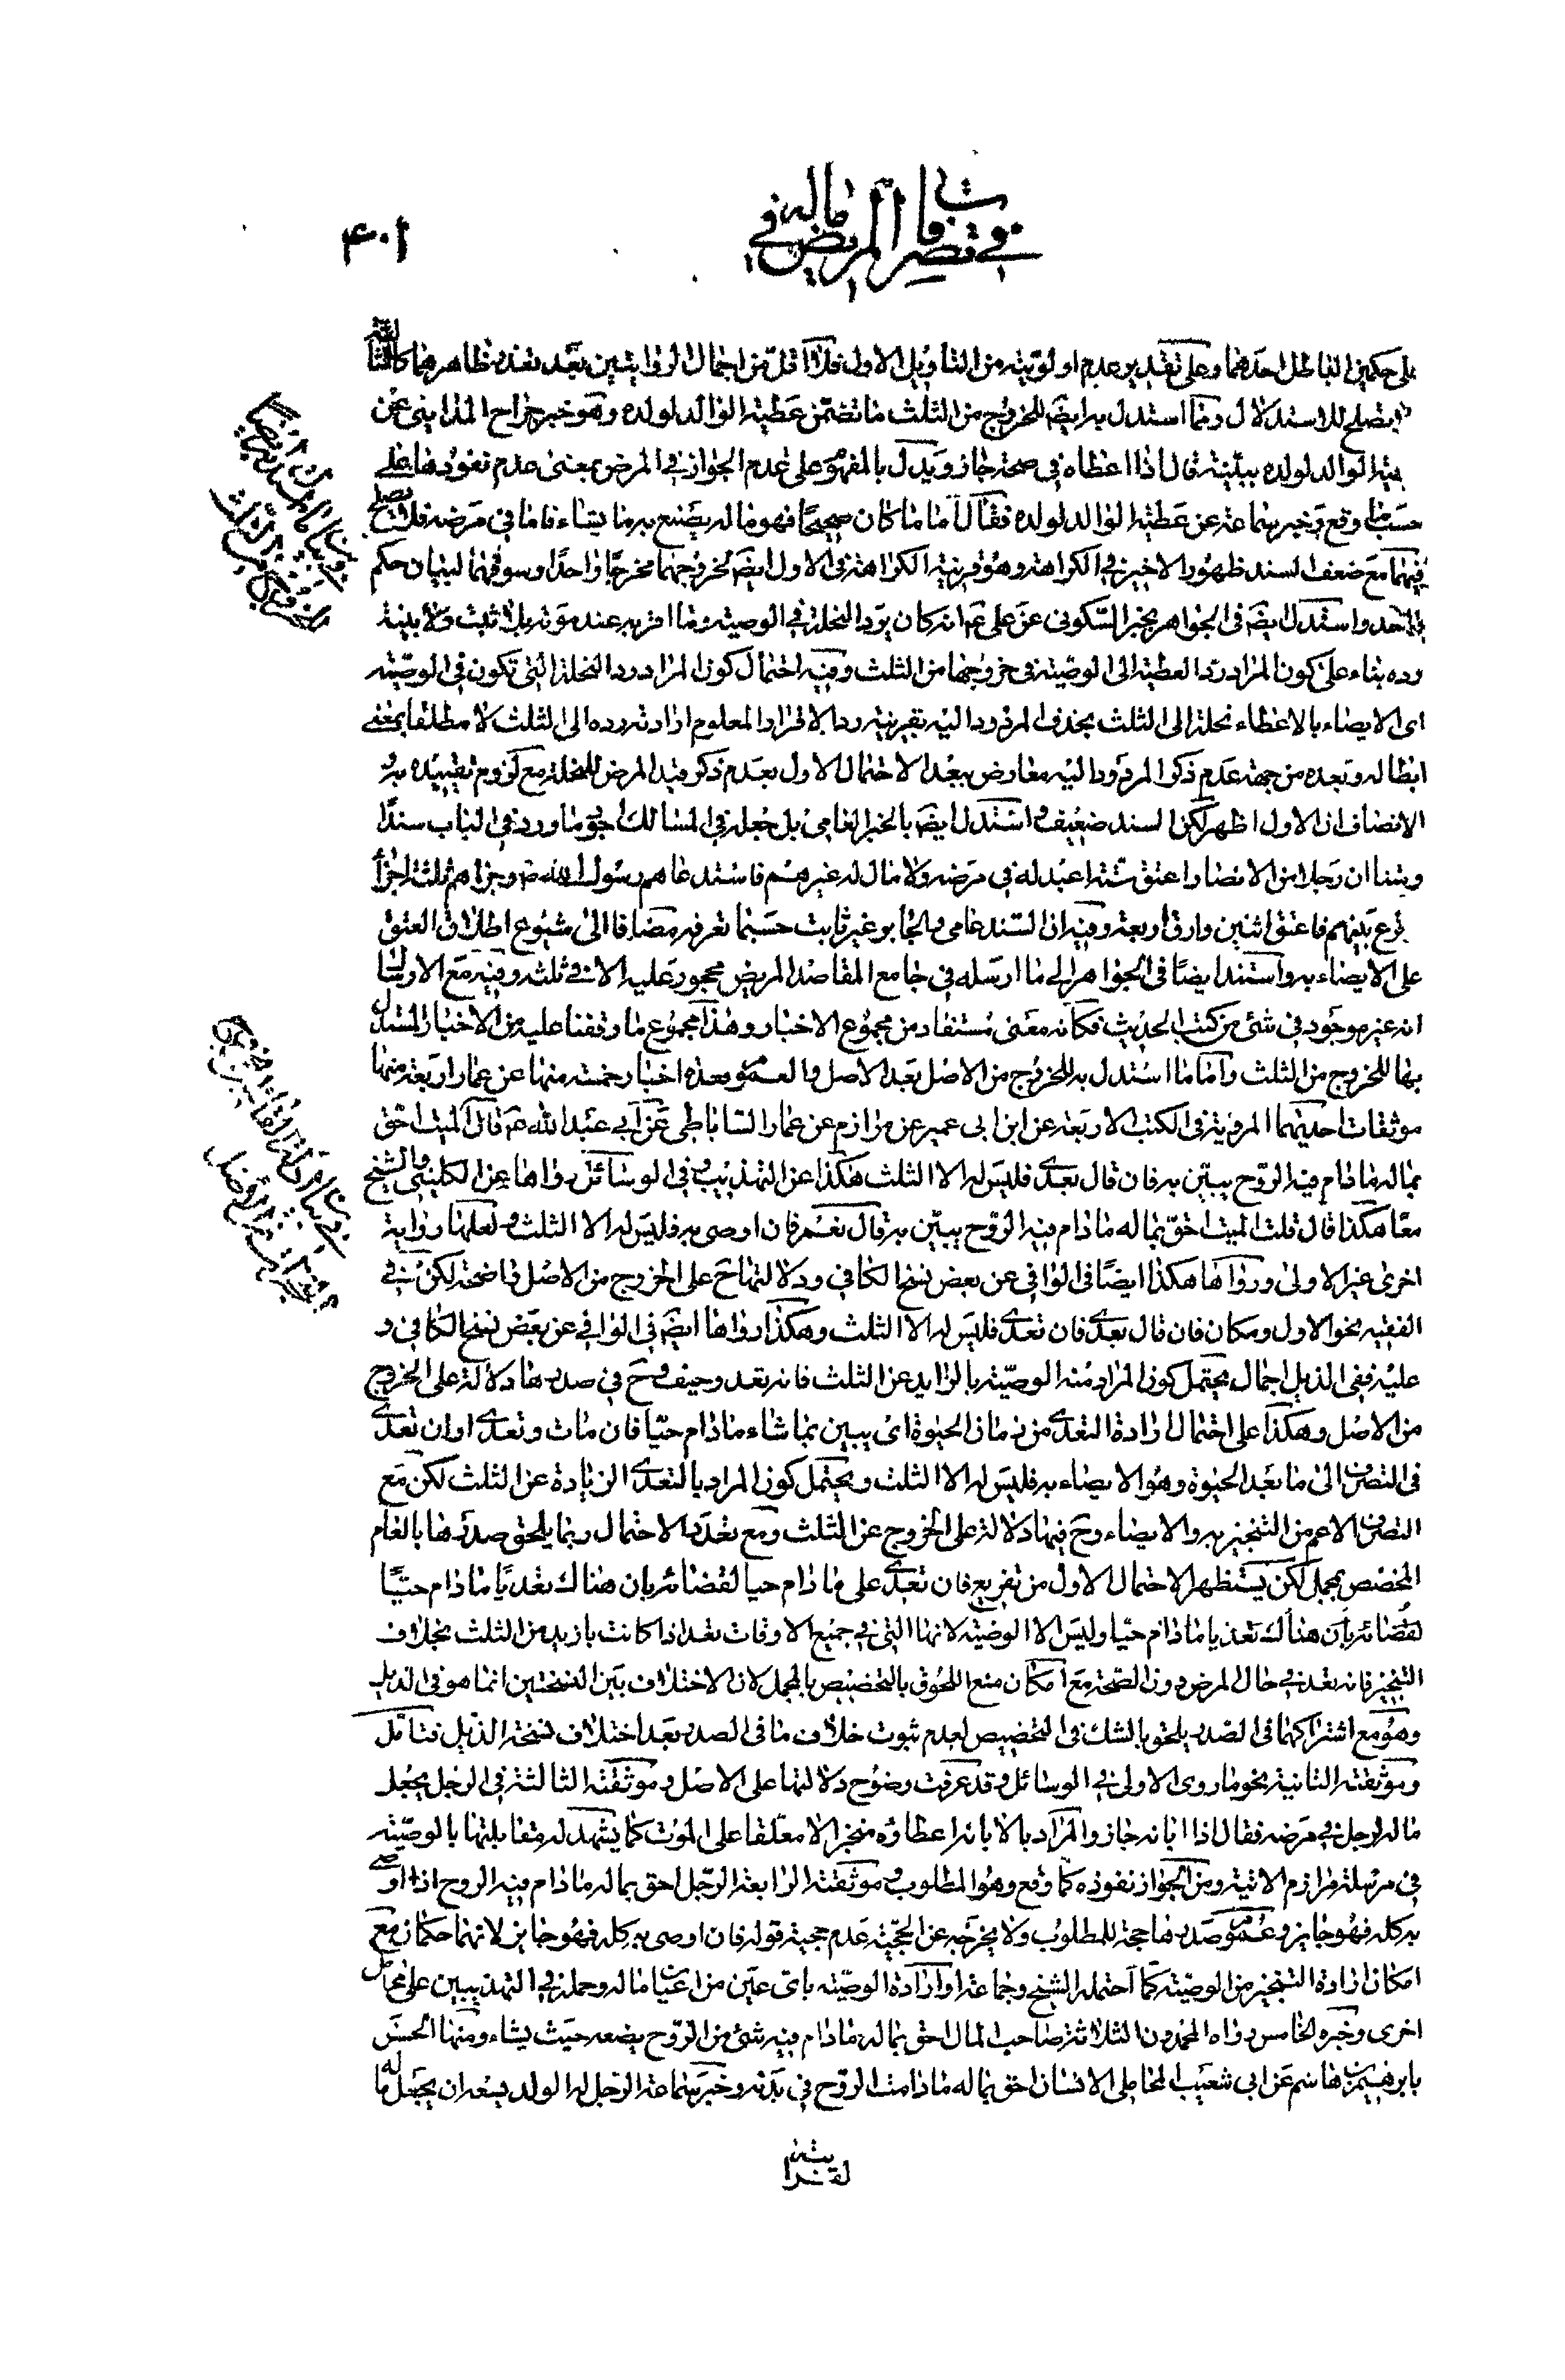 في تصرفات المريض في ماله
۴۰۱
على حكمين الباطل احدهما وعلى تقدير عدم اولويته من التأويل الاول فلا اقل من اجمال الروايتين بعد تعذر ظاهرهما كالثالثة
لا يصلح للاستدلال ومما استدل به ايضا للخروج من الثلث ما تضمن عطية الوالد لولده وهو خبر جراح المدايني عن
عطية الوالد لولده ببينة قال اذا اعطاه في صحة جاز ويدل بالمفهوم على عدم الجواز في المرض بمعنى عدم نفوذها على
حسب ما وقع وخبر سماعة عن عطية الوالد لولده فقال اما ما كان صحيحا فهو ماله يصنع به ما يشاء فاما في مرضه فلا يصلح
فيهما مع ضعف السند ظهور الاخير في الكراهة وهو قرينة الكراهة في الاول ايضا لخروجهما مخرجا واحدا وسوقهما لبيان حكم
واحد واستدل ايضا في الجواهر بخبر السكوني عن علي ع انه كان يرد النحلة في الوصية وما اقر به عند موته بلا ثبت ولا بينة
رده بناء على كون المراد رد العطية الى الوصية في خروجها من الثلث وفيه احتمال كون المراد رد النحلة التي تكون في الوصية
اى الايصاء بالاعطاء نحلة الى الثلث بحذف المردود اليه بقرينة رد الاقرار المعلوم ارادة رده الى الثلث لا مطلقا بمعنى
ابطاله وبعده من جهة عدم ذكر المردود اليه معارض ببعد الاحتمال الاول بعدم ذكر قيد المرض للنحلة مع لزوم تقييده به و
الانصاف ان الاول اظهر لكن السند ضعيف واستدل ايضا بالخبر العامي بل جعله في المسالك اجود ما ورد في الباب سندا
ومتنا ان رجلا من الانصار اعتق ستة اعبد له في مرضه ولا مال له غيرهم فاستدعاهم رسول الله ص وجزاهم ثلثة اجزاء
قرع بينهم فاعتق اثنين وارق اربعة وفيه ان السند عامي والجابر غير ثابت حسبما تعرفه مضافا الى شيوع اطلاق العتق
على الايصاء به واستند ايضا في الجواهر الى ما ارسله في جامع المقاصد المريض محجور عليه الا في ثلثه وفيه مع الارسال
انه غير موجود في شئ من كتب الحديث فكانه معنى مستفاد من مجموع الاخبار وهذا مجموع ما وقفنا عليه من الاخبار المستدل
بها للخروج من الثلث واما ما استدل به للخروج من الاصل بعد الاصل والعموم فعدة اخبار خمسة منها عن عمار اربعة منها
موثقات احديهما المروية في الكتب الاربعة عن ابن ابى عمير عن مرازم عن عمار الساباطي عن ابي عبد الله ع قال الميت احق
بماله ما دام فيه الروح يبين به فان قال بعدى فليس له الا الثلث هكذا عن التهذيب وفي الوسائل رواها عن الكليني والشيخ
معا هكذا قال قلت الميت احق بماله ما دام فيه الروح يبين به قال نعم فان اوصى به فليس له الا الثلث ولعلها رواية
اخرى غير الاولى ورواها هكذا ايضا في الوافي عن بعض نسخ الكافي ودلالتها ح على الخروج من الاصل واضحة لكن في
الفقيه نحو الاول ومكان فان قال بعدى فان تعدى فليس له الا الثلث وهكذا رواها ايضا في الوافي عن بعض نسخ الكافي و
عليه ففي الذيل اجمال يحتمل كون المراد منه الوصية بالزايد عن الثلث فانه تعد وحيف وح في صدرها دلالة على الخروج
من الاصل وهكذا على احتمال ارادة التعدى من زمان الحيوة اى يبين بما شاء ما دام حيا فان مات وتعدى او ان تعدى
في التصرف الى ما بعد الحيوة وهو الايصاء به فليس له الا الثلث ويحتمل كون المراد بالتعدى الزيادة عن الثلث لكن مع
التصرف الاعم من التنجيز به والايصاء وح فيها دلالة على الخروج عن الثلث ومع تعدد الاحتمال ربما يلحق صدرها بالعام
المخصص بمجمل لكن يستظهر الاحتمال الاول من تفريع فان تعدى على ما دام حيا لقضائه بان هناك تعديا ما دام حيا
لقضائه بان هناك تعديا ما دام حيا وليس الا الوصية لانها التي في جميع الاوقات تعد اذا كانت بازيد من الثلث بخلاف
التنجيز فانه تعد في حال المرض دون الصحة مع امكان منع اللحوق بالتخصيص بالمجمل لان الاختلاف بين النسختين انما هو في الذيل
وهو مع اشتراكهما في الصدر يلحق بالشك في التخصيص لعدم ثبوت خلاف ما في الصدر بعد اختلاف نسخة الذيل فتامل
وموثقته الثانية نحو ما روى الاولى في الوسائل وقد عرفت وضوح دلالتها على الاصل وموثقته الثالثة في الرجل يجعل
ماله لرجل في مرضه فقال اذا ابانه جاز والمراد بالابانة اعطاؤه منجزا لا معلقا على الموت كما يشهد له مقابلتها بالوصية
في مرسلة مرازم الاتية ومن الجواز نفوذه كما وقع وهو المطلوب وموثقته الرابعة الرجل احق بماله ما دام فيه الروح اذا اوصى
به كله فهو جايز وعموم صدرها حجة للمطلوب ولا يخرجه عن الحجية عدم حجية قوله فان اوصى به كله فهو جايز لانهما حكمان مع
امكان ارادة التنجيز من الوصية كما احتمله الشيخ وجماعة او ارادة الوصية باى عين من اعيان ماله وحمله في التهذيبين على محامل
اخرى وخبره الخامس رواه المحمدون الثلاثة صاحب المال احق بماله ما دام فيه شئ من الروح يضعه حيث يشاء ومنها الحسن
بابرهيم بن هاشم عن ابى شعيب المحاملي الانسان احق بماله ما دامت الروح في بدنه وخبر سماعة الرجل له الولد يسعه ان يجعل ماله
لقرابته